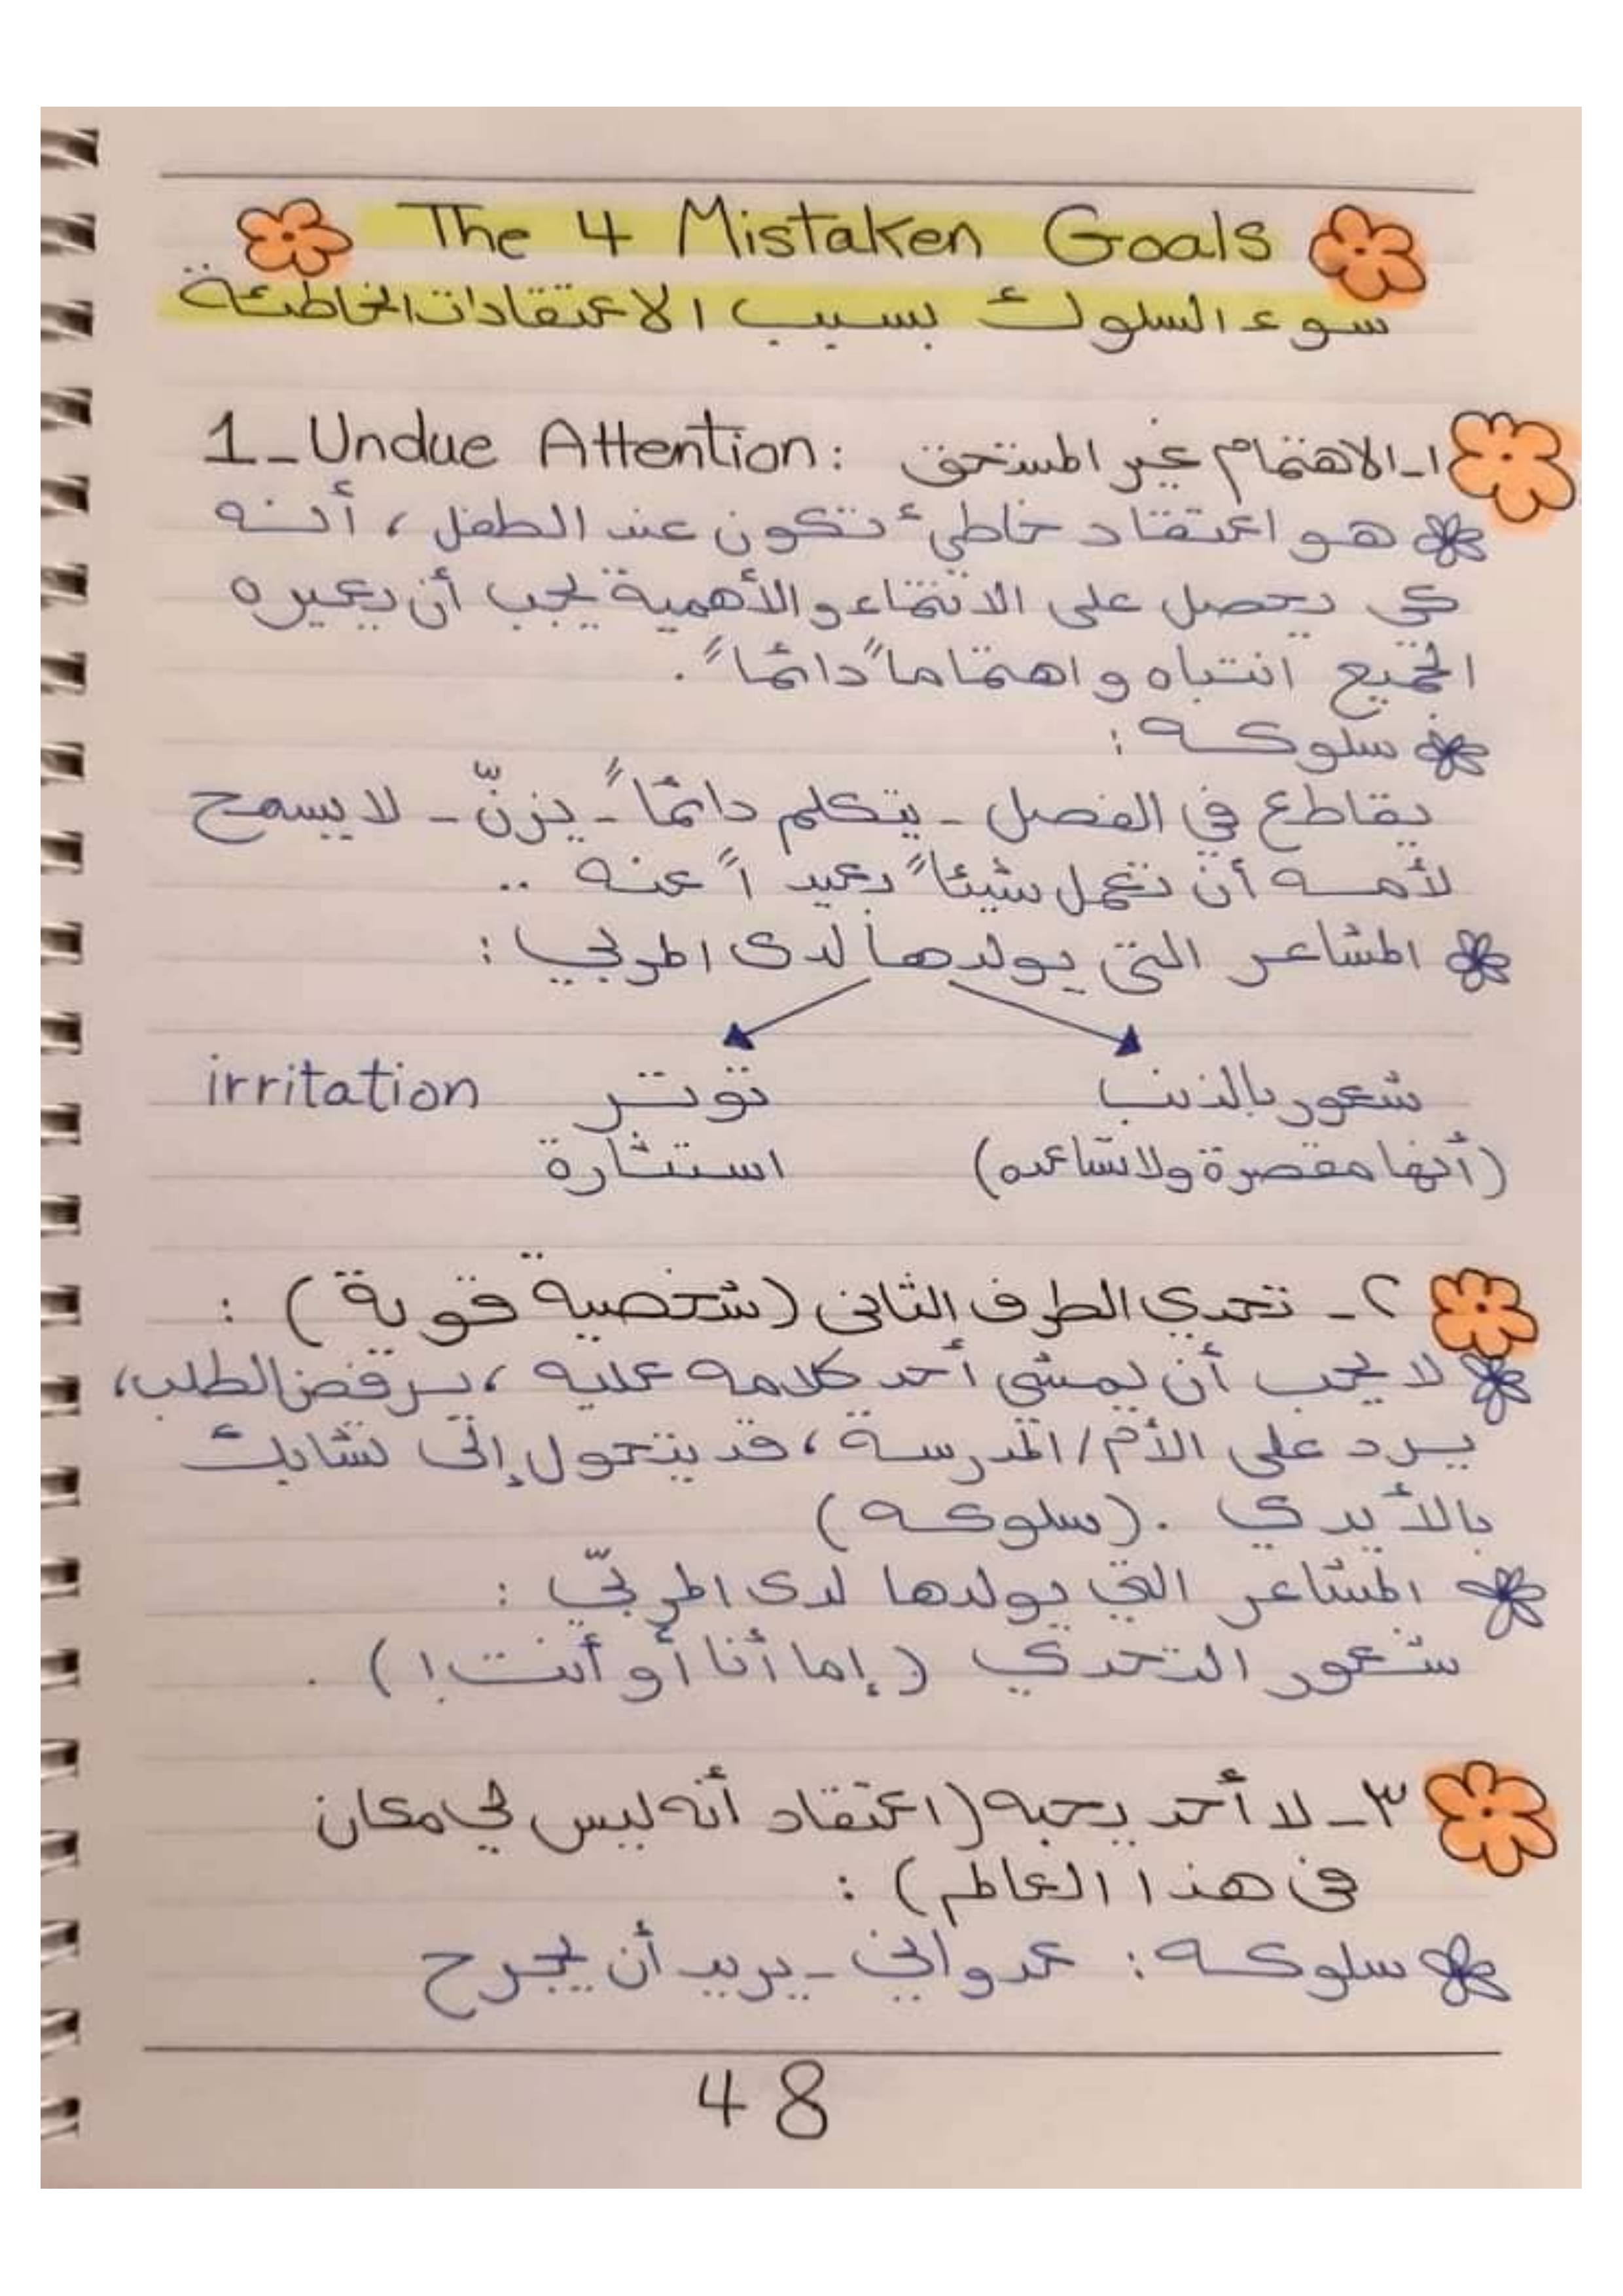 The 4 Mistaken Goals
سوء السلوك بسبب الاعتقادات الخاطئة
1_Undue Attention: ١-الاهتمام غير المستحق
هو اعتقاد خاطئ تكون عند الطفل، أنه
كي يحصل على الانتماء والأهمية يجب أن يعيره
الجميع انتباه واهتماماً دائماً.
سلوكه:
يقاطع في الفصل - يتكلم دائماً - يزنّ - لا يسمح
لأمه أن تعمل شيئاً بعيداً عنه ..
المشاعر التي يولدها لدى المربي:
شعور بالذنب توتر irritation
(أنها مقصرة ولا تساعده) استثارة
٢- تحدي الطرف الثاني (شخصية قوية):
لا يحب أن يمشي أحد كلامه عليه، يرفض الطلب،
يرد على الأم/المدرسة، قد يتحول إلى تشابك
بالأيدي. (سلوكه)
المشاعر التي يولدها لدى المربيّ:
شعور التحدي (إما أنا أو أنت!).
٣- لا أحد يحبه (اعتقاد أنه ليس لي مكان
في هذا العالم):
سلوكه: عدواني - يريد أن يجرح
48